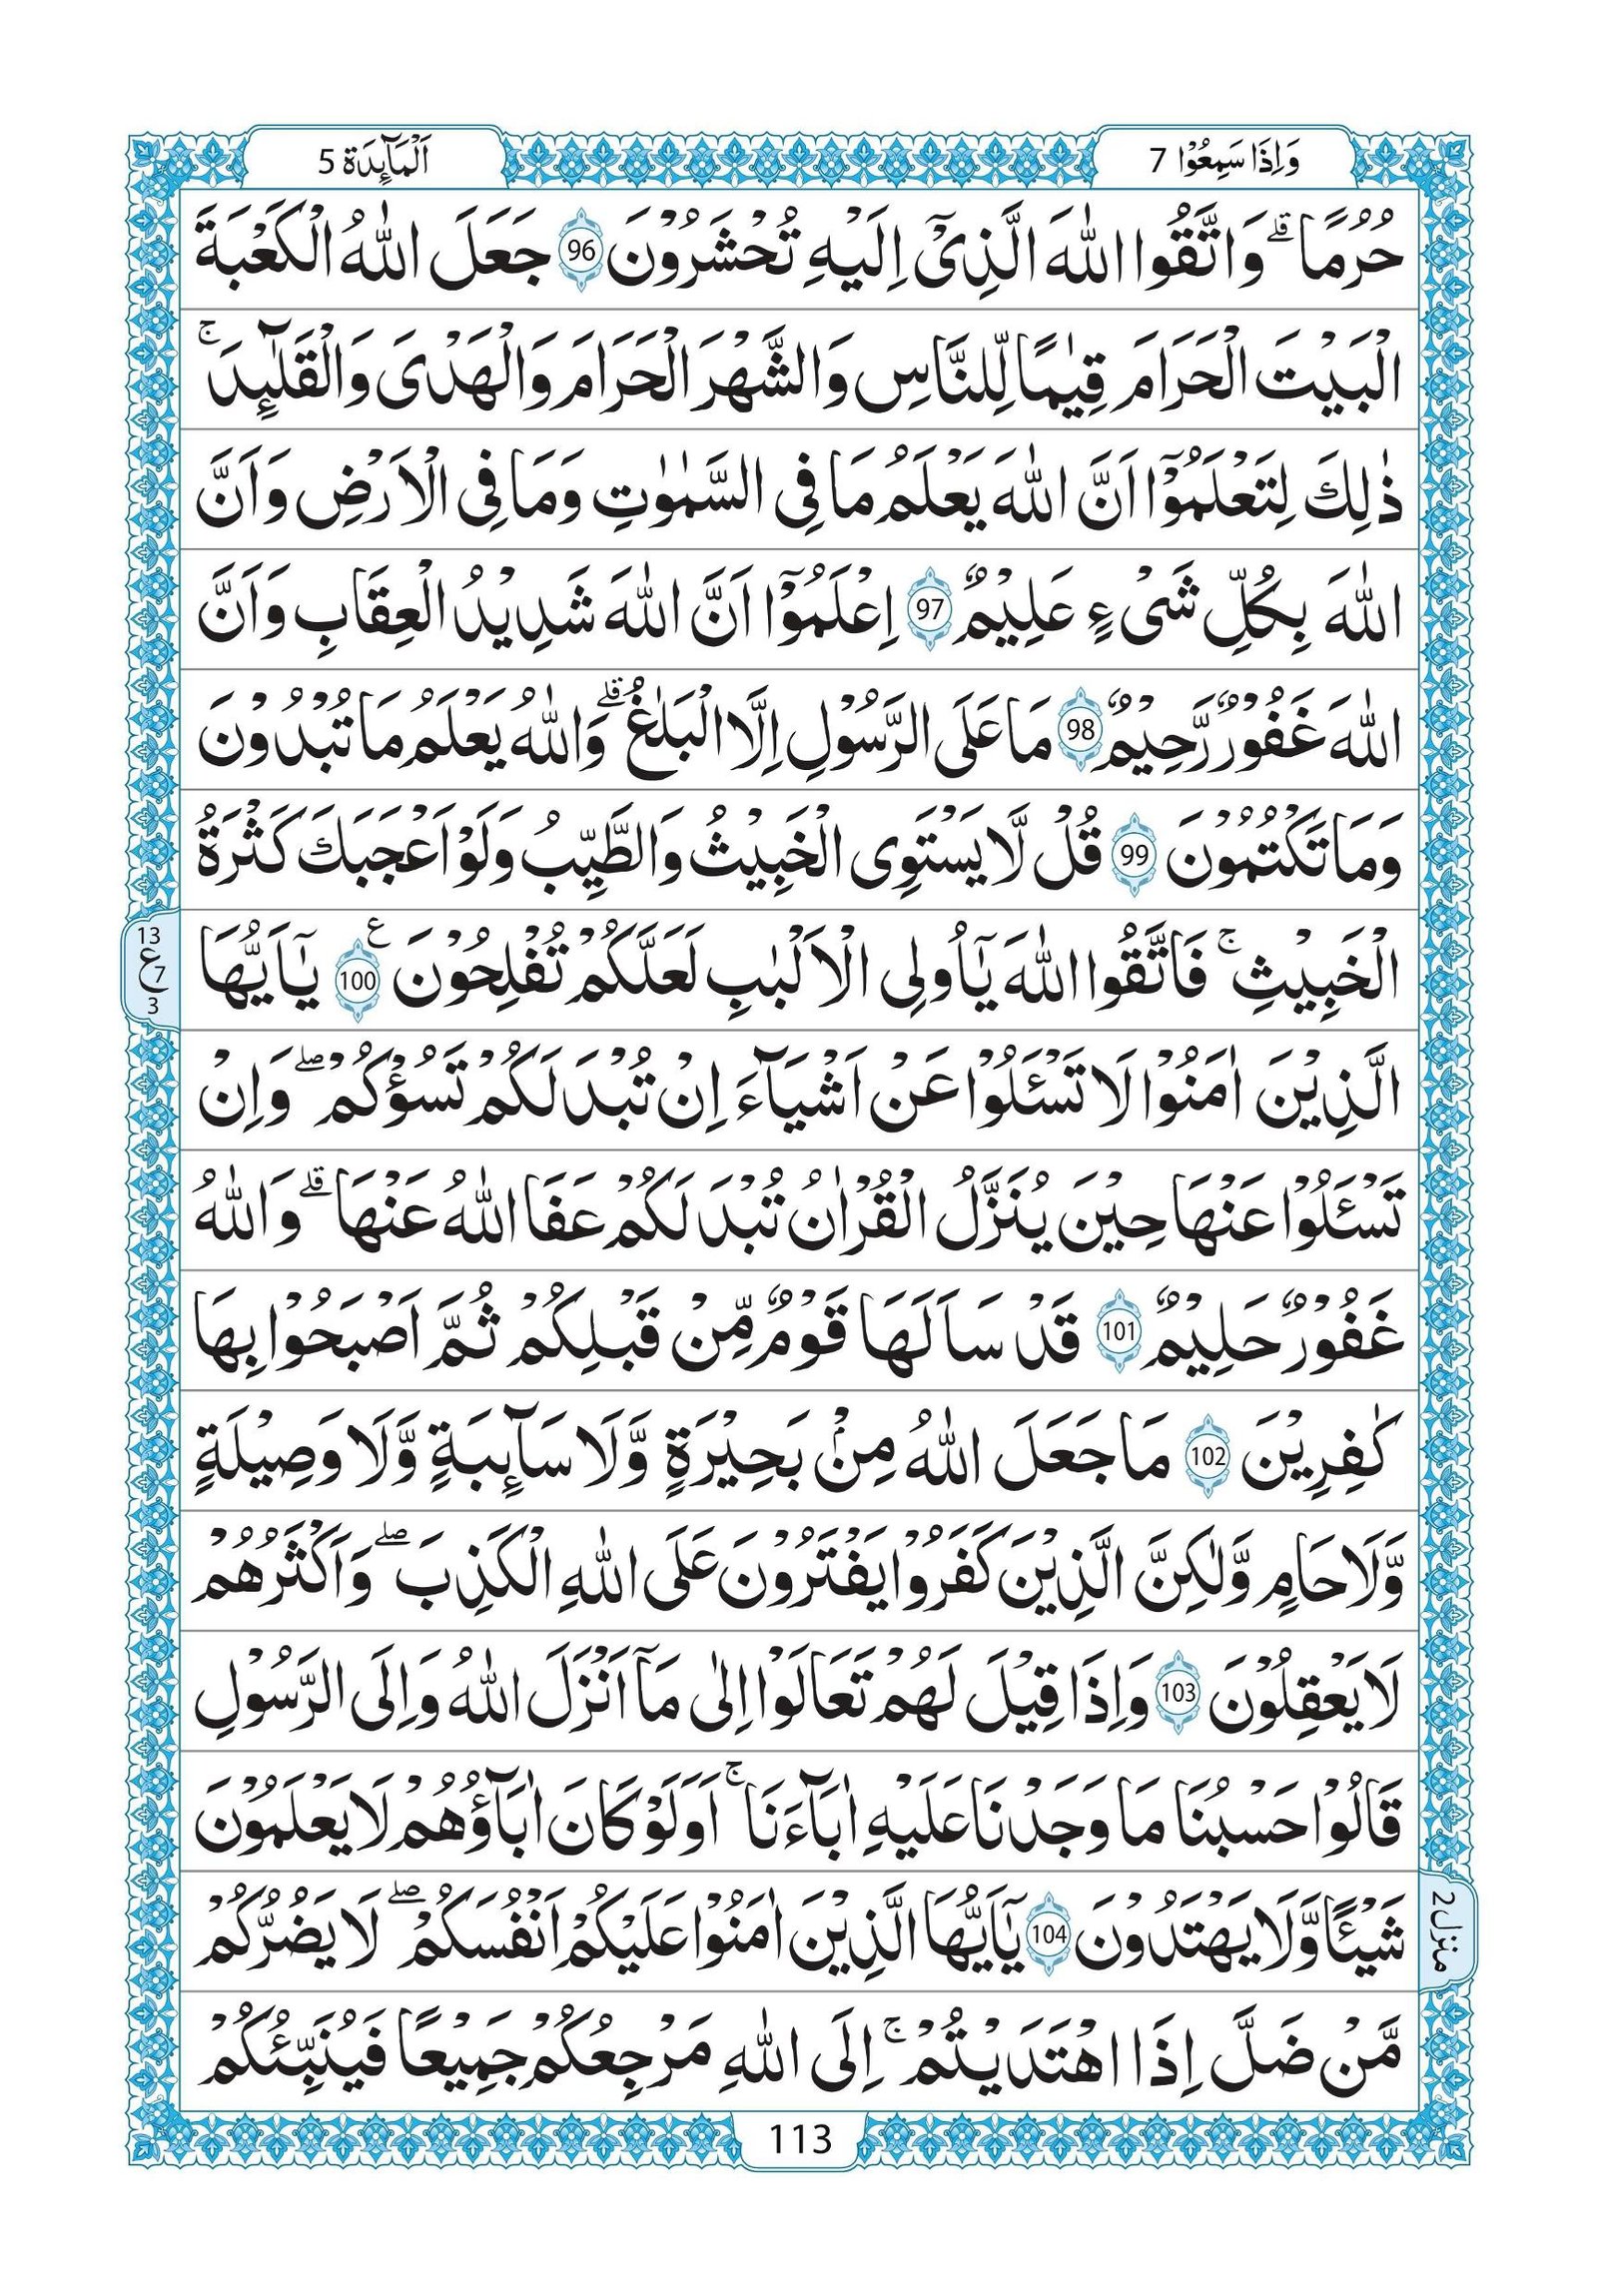 وَاِذَا سَمِعُوْا 7
اَلْمَآئِدَة 5
حُرُمًا ۗ وَاتَّقُوا اللّٰهَ الَّذِىْٓ اِلَيْهِ تُحْشَرُوْنَ 96 جَعَلَ اللّٰهُ الْكَعْبَةَ
الْبَيْتَ الْحَرَامَ قِيٰمًا لِّلنَّاسِ وَالشَّهْرَ الْحَرَامَ وَالْهَدْىَ وَالْقَلَآئِدَ ۚ
ذٰلِكَ لِتَعْلَمُوْٓا اَنَّ اللّٰهَ يَعْلَمُ مَا فِى السَّمٰوٰتِ وَمَا فِى الْاَرْضِ وَاَنَّ
اللّٰهَ بِكُلِّ شَىْءٍ عَلِيْمٌ 97 اِعْلَمُوْٓا اَنَّ اللّٰهَ شَدِيْدُ الْعِقَابِ وَاَنَّ
اللّٰهَ غَفُوْرٌ رَّحِيْمٌ 98 مَا عَلَى الرَّسُوْلِ اِلَّا الْبَلٰغُ ۗ وَاللّٰهُ يَعْلَمُ مَا تُبْدُوْنَ
وَمَا تَكْتُمُوْنَ 99 قُلْ لَّا يَسْتَوِى الْخَبِيْثُ وَالطَّيِّبُ وَلَوْ اَعْجَبَكَ كَثْرَةُ
الْخَبِيْثِ ۚ فَاتَّقُوا اللّٰهَ يٰٓاُولِى الْاَلْبٰبِ لَعَلَّكُمْ تُفْلِحُوْنَ ع 100 يٰٓاَيُّهَا
13 ع 7 3
الَّذِيْنَ اٰمَنُوْا لَا تَسْئَلُوْا عَنْ اَشْيَآءَ اِنْ تُبْدَ لَكُمْ تَسُؤْكُمْ ۖ وَاِنْ
تَسْئَلُوْا عَنْهَا حِيْنَ يُنَزَّلُ الْقُرْاٰنُ تُبْدَ لَكُمْ عَفَا اللّٰهُ عَنْهَا ۗ وَاللّٰهُ
غَفُوْرٌ حَلِيْمٌ 101 قَدْ سَاَلَهَا قَوْمٌ مِّنْ قَبْلِكُمْ ثُمَّ اَصْبَحُوْا بِهَا
كٰفِرِيْنَ 102 مَا جَعَلَ اللّٰهُ مِنْۢ بَحِيْرَةٍ وَّلَا سَآئِبَةٍ وَّلَا وَصِيْلَةٍ
وَّلَا حَامٍ وَّلٰكِنَّ الَّذِيْنَ كَفَرُوْا يَفْتَرُوْنَ عَلَى اللّٰهِ الْكَذِبَ ۖ وَاَكْثَرُهُمْ
لَا يَعْقِلُوْنَ 103 وَاِذَا قِيْلَ لَهُمْ تَعَالَوْا اِلٰى مَآ اَنْزَلَ اللّٰهُ وَاِلَى الرَّسُوْلِ
قَالُوْا حَسْبُنَا مَا وَجَدْنَا عَلَيْهِ اٰبَآءَنَا ۚ اَوَلَوْ كَانَ اٰبَآؤُهُمْ لَا يَعْلَمُوْنَ
شَيْئًا وَّلَا يَهْتَدُوْنَ 104 يٰٓاَيُّهَا الَّذِيْنَ اٰمَنُوْا عَلَيْكُمْ اَنْفُسَكُمْ ۖ لَا يَضُرُّكُمْ
منزل 2
مَّنْ ضَلَّ اِذَا اهْتَدَيْتُمْ ۚ اِلَى اللّٰهِ مَرْجِعُكُمْ جَمِيْعًا فَيُنَبِّئُكُمْ
113